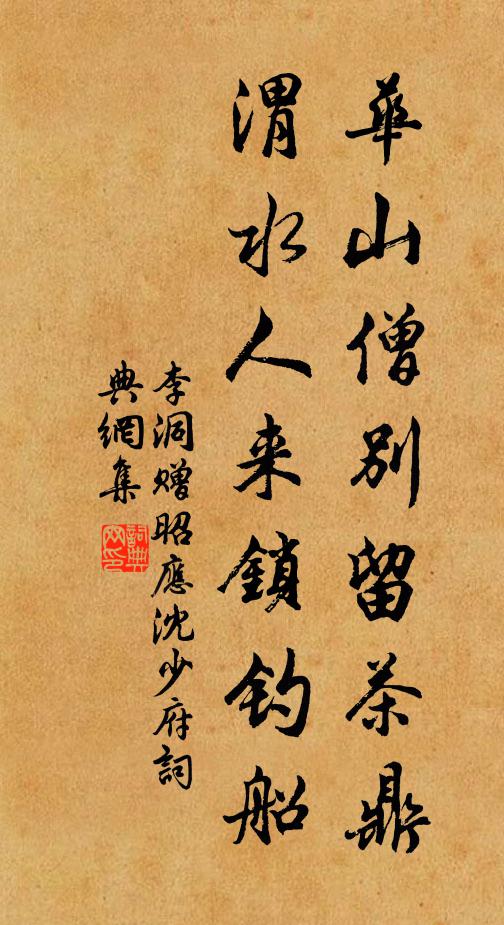 華山僧別留茶鼎
渭水人来鎖釣船
李洞贈昭應沈少府詞
典網集
詞典網印